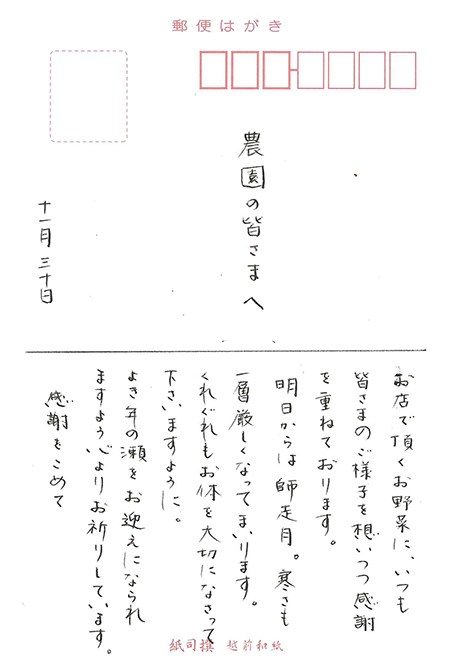 郵便はがき
農園の皆さまへ
十一月三十日
お店で頂くお野菜に、いつも
皆さまのご様子を想いつつ感謝
を重ねております。
明日からは師走月。寒さも
一層厳しくなってまいります。
くれぐれもお体を大切になさって
下さいますように。
よき年の瀬をお迎えになられ
ますよう心よりお祈りしています。
感謝をこめて
紙司撰 越前和紙